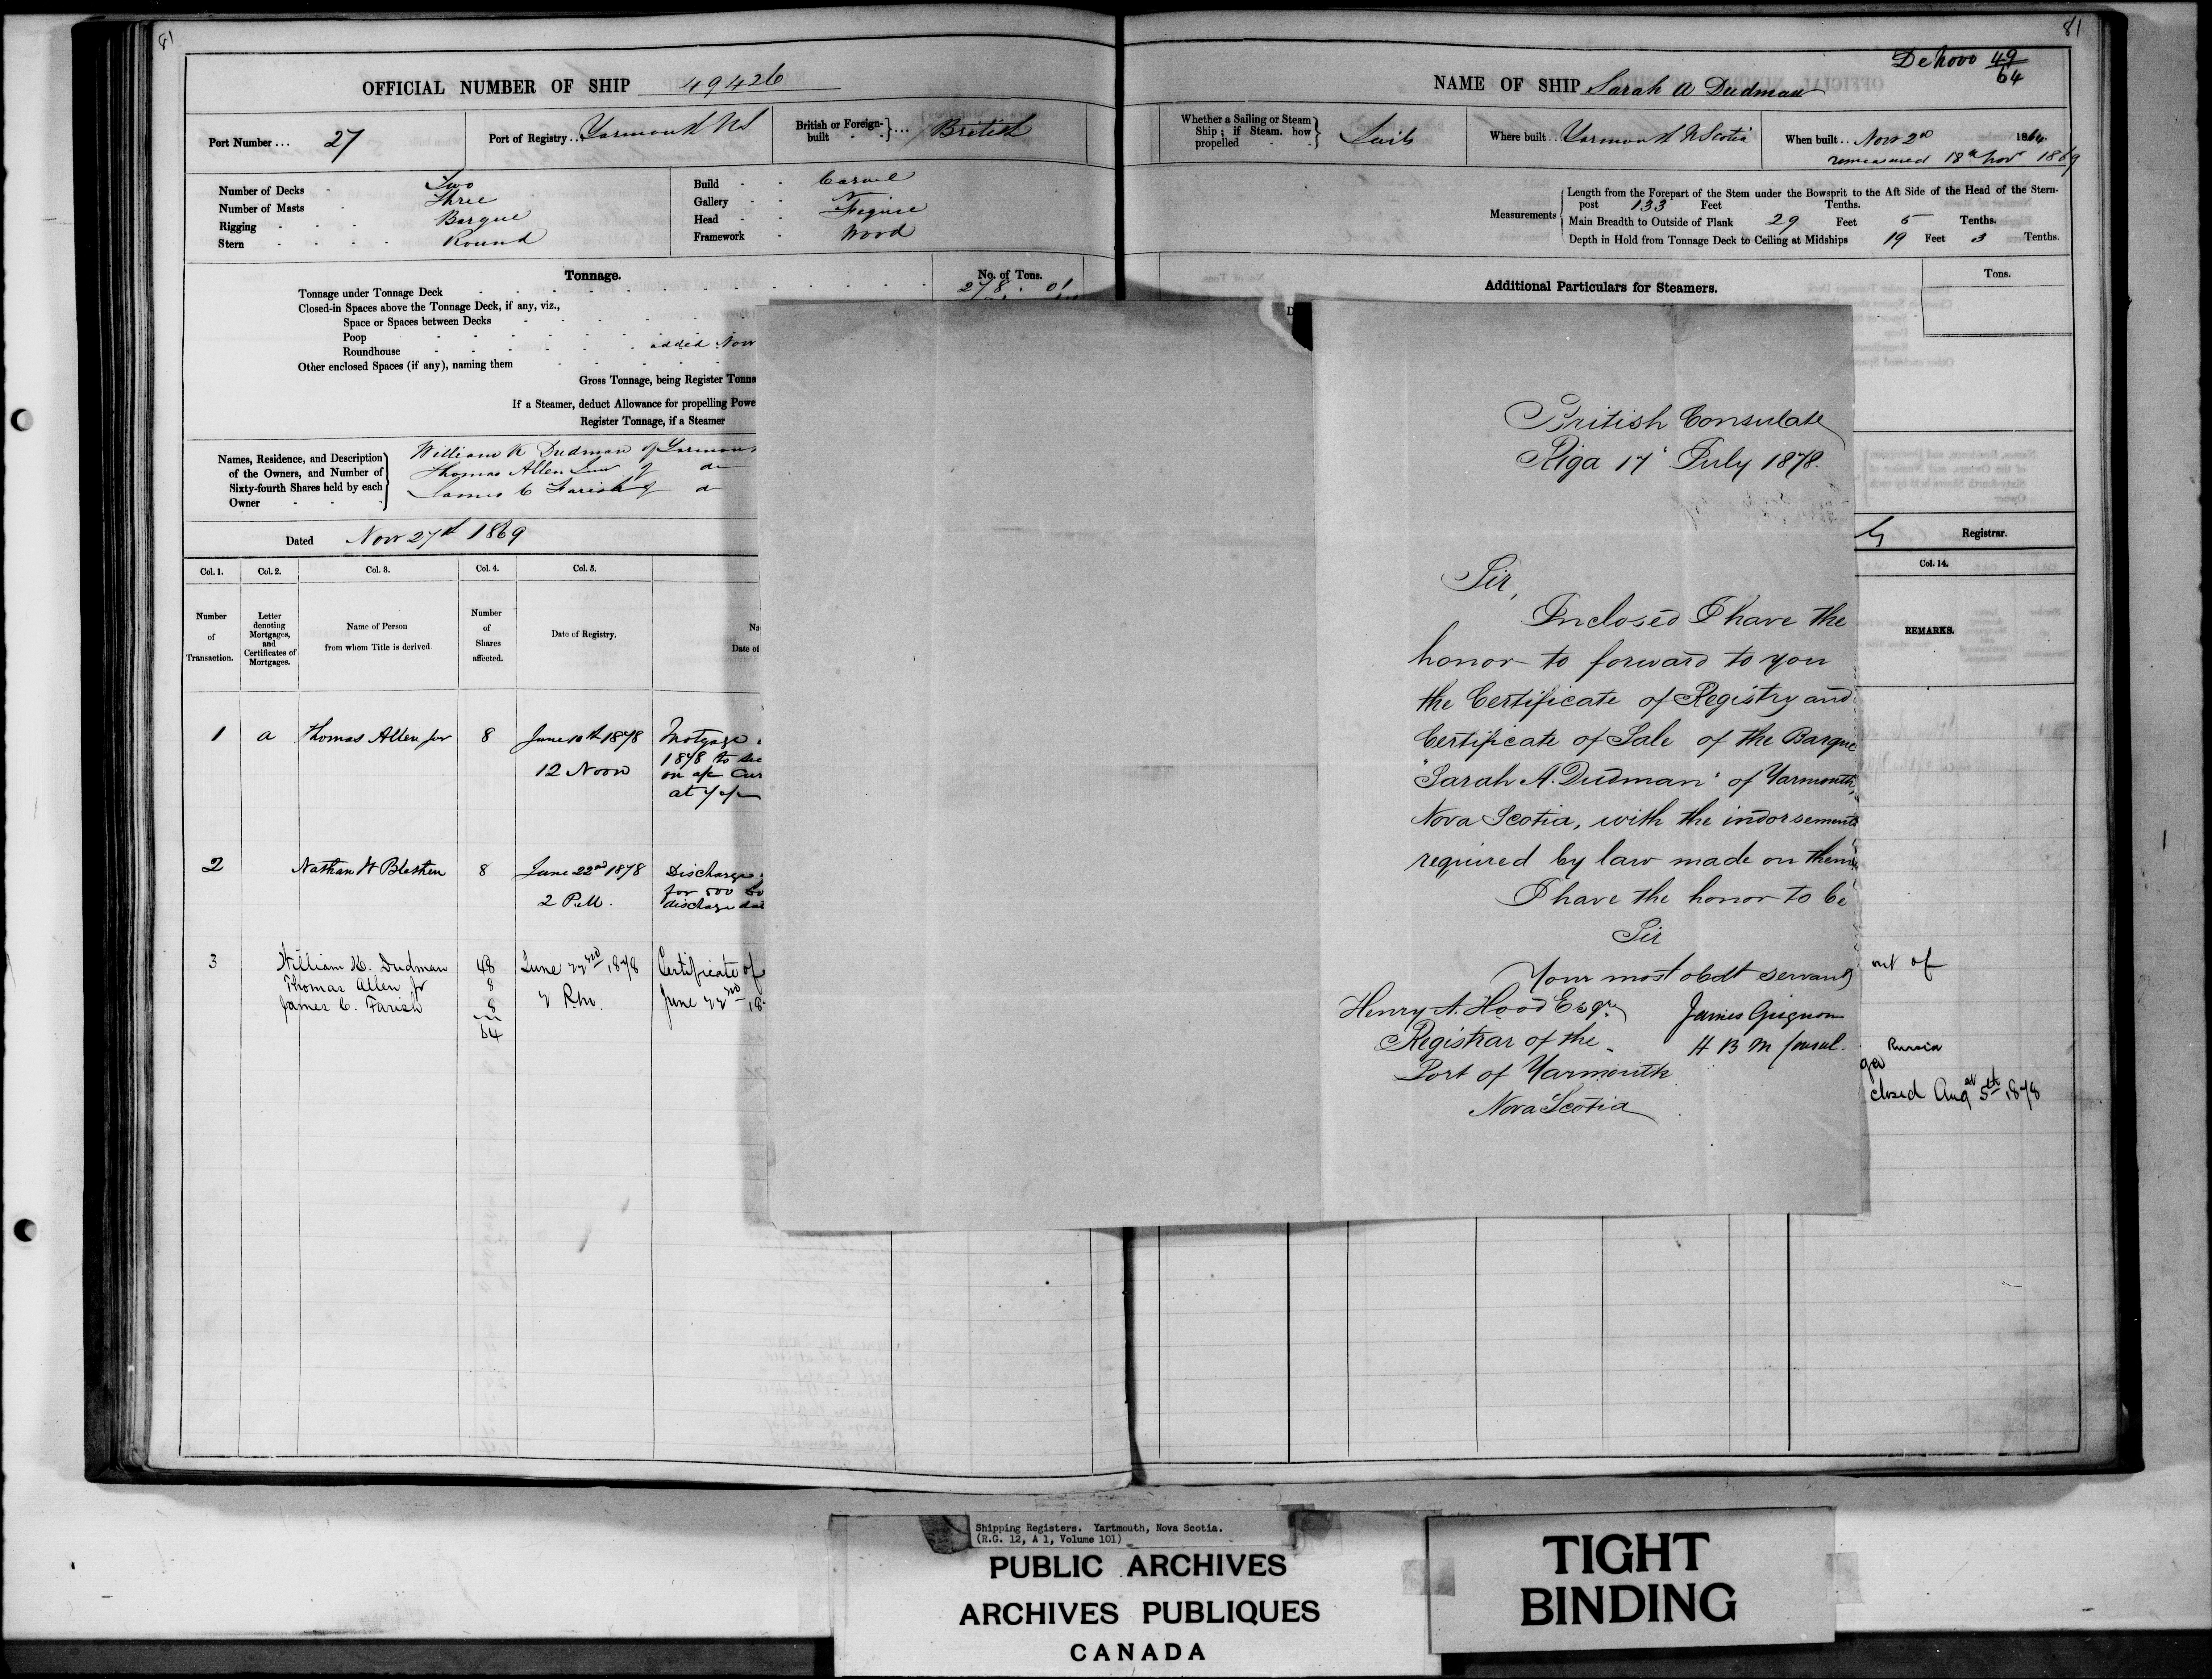 81
OFFICIAL NUMBER OF SHIP 49426
Port Number ... 27
Port of Registry .. Yarmouth NS
British or Foreign-built } ... British
Number of Decks - Two
Number of Masts - Three
Rigging - - - Barque
Stern - - - - Round
Build - - Carvel
Gallery - -
Head - - Figure
Framework - Wood
Tonnage.
No. of Tons.
Tonnage under Tonnage Deck 278 . 01
Closed-in Spaces above the Tonnage Deck, if any, viz.,
Space or Spaces between Decks
Poop
Roundhouse added Nov
Other enclosed Spaces (if any), naming them
Gross Tonnage, being Register Tonna
If a Steamer, deduct Allowance for propelling Powe
Register Tonnage, if a Steamer
Names, Residence, and Description of the Owners, and Number of Sixty-fourth Shares held by each Owner
William K Dudman of Yarmou
Thomas Allen Jun of do
James C Farish of do
Dated Nov 27th 1869
Col. 1. Col. 2. Col. 3. Col. 4. Col. 5.
Number of Transaction.
Letter denoting Mortgages, and Certificates of Mortgages.
Name of Person from whom Title is derived
Number of Shares affected.
Date of Registry.
Na
Date of
1 a Thomas Allen jnr 8 June 10th 1878 Mortgage
12 Noon 1878 to sec
on a/c Cur
at
2 Nathan W Blethen 8 June 22nd 1878 Discharge
2 P.M. for 500
discharge dat
3 William K. Dudman 48 June 22nd 1878 Certificate of
Thomas Allen Jr 8
James C. Farish 8 2 P.m. June 22nd 18
64
81
De Novo 49/64
NAME OF SHIP Sarah A Dudman
Whether a Sailing or Steam Ship; if Steam, how propelled } Sails
Where built .. Yarmouth N Scotia
When built .. Nov 2nd 1864
remeasured 18th Nov 1869
Measurements
Length from the Forepart of the Stem under the Bowsprit to the Aft Side of the Head of the Stern-
post 133 Feet Tenths.
Main Breadth to Outside of Plank 29 Feet 5 Tenths.
Depth in Hold from Tonnage Deck to Ceiling at Midships 19 Feet 3 Tenths.
Additional Particulars for Steamers.
Tons.
Registrar.
Col. 14.
REMARKS.
out of
Russia
ga
closed Augst 5th 1878
British Consulate
Riga 17 July 1878.
Sir,
Inclosed I have the
honor to forward to you
the Certificate of Registry and
Certificate of Sale of the Barque
"Sarah A. Dudman" of Yarmouth,
Nova Scotia, with the indorsements
required by law made on them
I have the honor to be
Sir
Your most obdt servant
Henry A. Hood Esqre
James Grignon
Registrar of the
H B M Consul.
Port of Yarmouth
Nova Scotia
Shipping Registers. Yartmouth, Nova Scotia.
(R.G. 12, A 1, Volume 101)
PUBLIC ARCHIVES
ARCHIVES PUBLIQUES
CANADA
TIGHT
BINDING